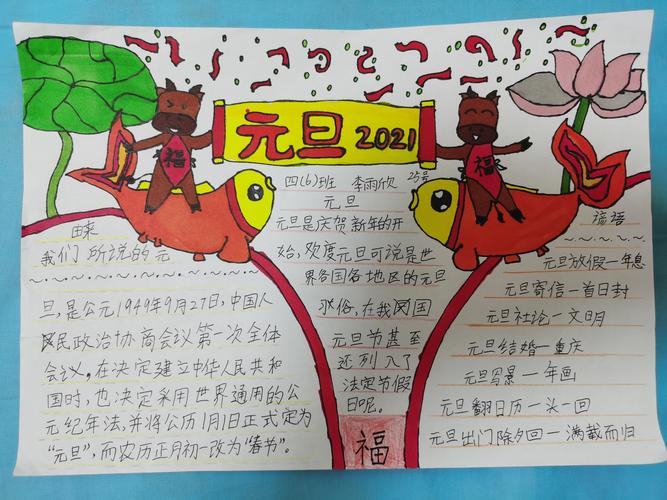 元旦 2021
四(6)班 李雨欣 25号
福
福
由来
我们所说的元
旦,是公元1949年9月27日,中国人
民民政治协商会议第一次全体
会议,在决定建立中华人民共和
国时,也决定采用世界通用的公
元纪年法,并将公历1月1日正式定为
“元旦”,而农历正月初一改为“春节”。
元旦
元旦是庆贺新年的开
始,欢度元旦可说是世
界各国各地区的元旦
求俗,在我国国
元旦节甚至
还列入了
法定节假
日呢。
福
谐语
元旦放假一年息
元旦寄信一首日封
元旦社论一文明
元旦结婚一重庆
元旦写景一年画
元旦翻日历一头一回
元旦出门除夕回一满载而归